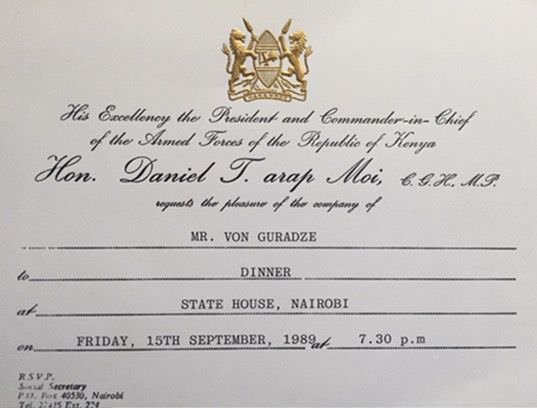 His Excellency the President and Commander-in-Chief
of the Armed Forces of the Republic of Kenya
Hon. Daniel T. arap Moi, C.G.H., M.P.
requests the pleasure of the company of
MR. VON GURADZE
to DINNER
at STATE HOUSE, NAIROBI
on FRIDAY, 15TH SEPTEMBER, 1989 at 7.30 p.m
R.S.V.P.
Social Secretary
P.O. Box 40530, Nairobi
Tel. Ext. 224